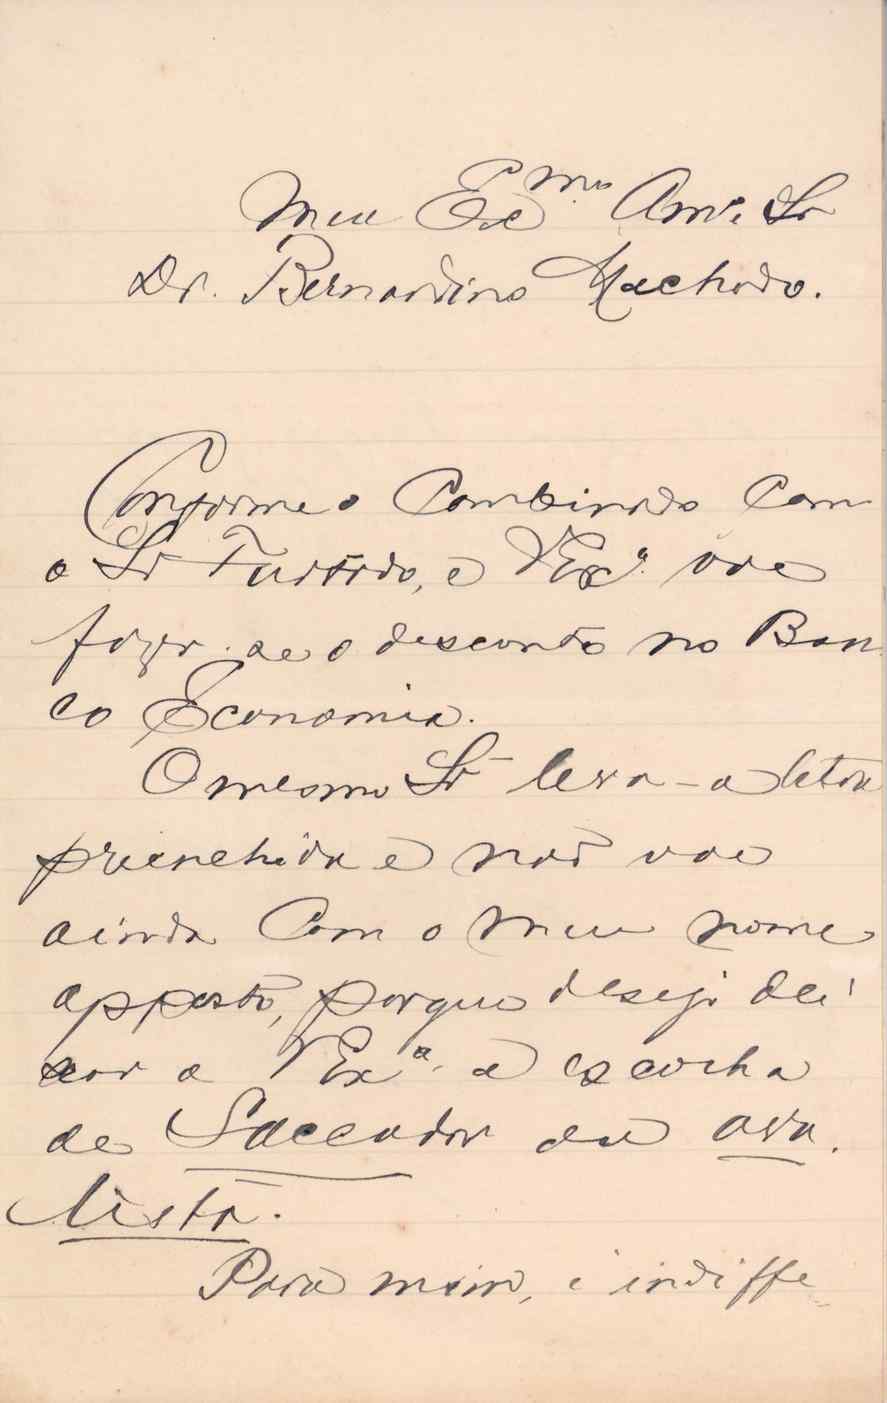 Meu Exmo Amo. Sr
Dr. Bernardino Machado.
Conforme o Combinado Com
o Sr Furtado, e VExa. vae
fazer-se o desconto no Ban
co Economia.
O mesmo Sr leva-a letra
prienchida e não vae
ainda Com o meu nome
apposto, porque desejo dei
xar a VExa. a escolha
de Saccador ou ava.
lista.
Para mim, é indiffe